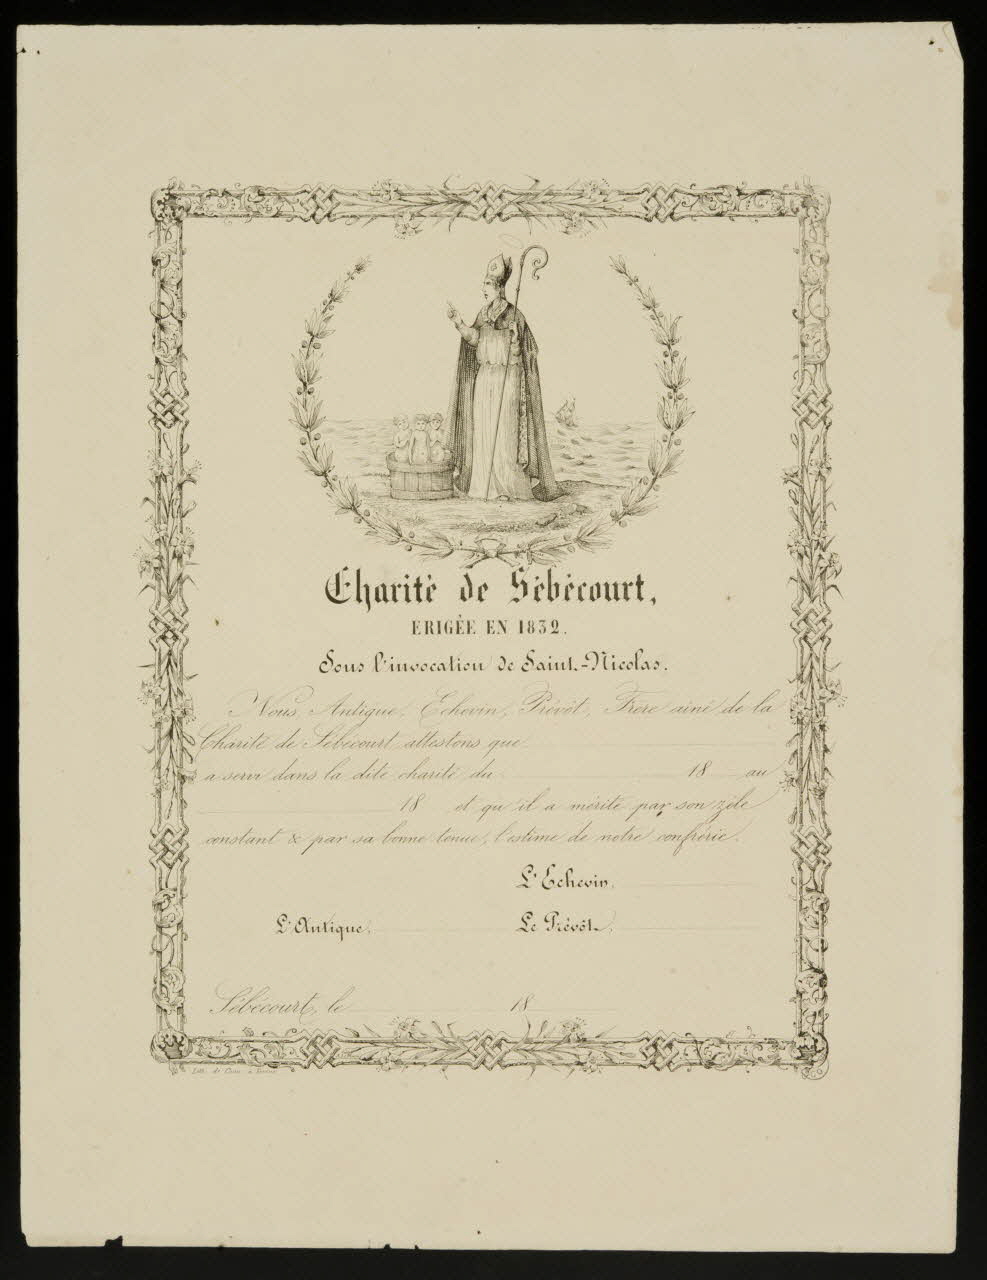 Charité de Sébécourt,
ERIGÉE EN 1832.
Sous l'invocation de Saint-Nicolas.
Nous, Antique, Echevin, Prévôt, Frère ainé de la
Charité de Sébécourt attestons que
a servi dans la dite charité du 18 au
18 et qu'il a mérité par son zèle
constant & par sa bonne tenue, l'estime de notre confrérie.
L'Echevin,
L'Antique, Le Prévôt,
Sébécourt, le 18
Lith. de